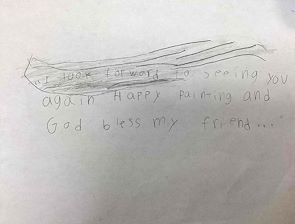 "I look forward to seeing you
again Happy painting and
God bless my friend..."